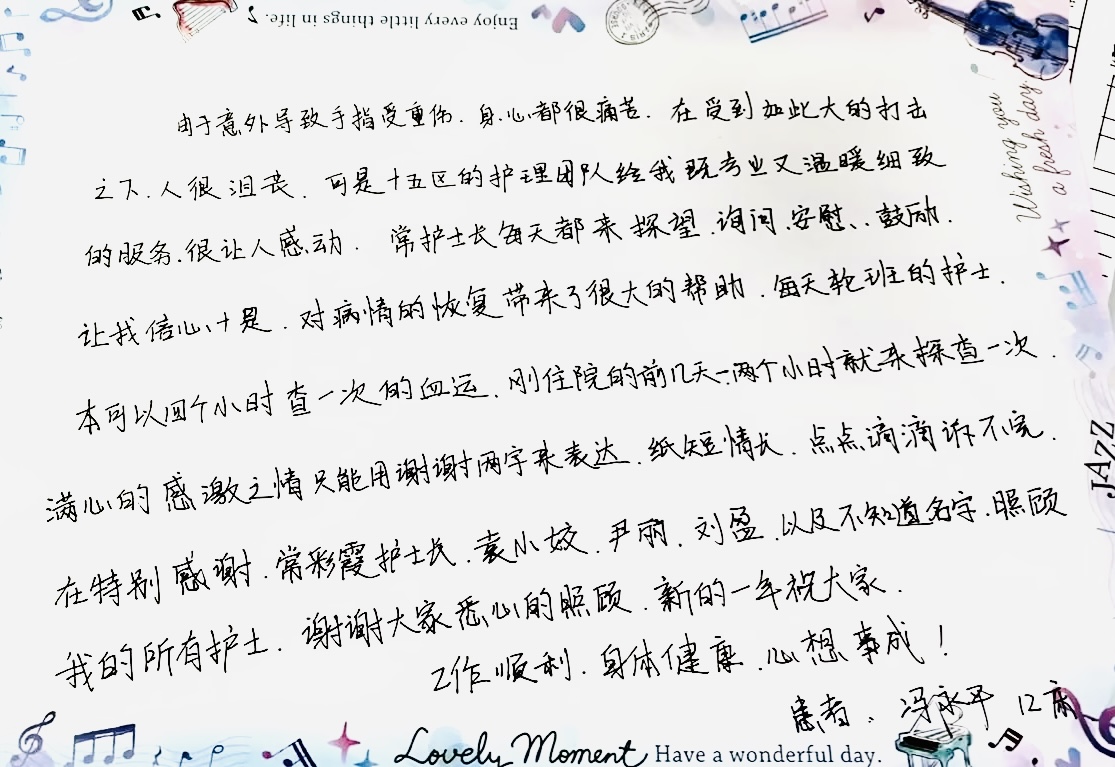 Enjoy every little things in life.
Wishing you
a fresh day.
由于意外导致手指受重伤.身心都很痛苦.在受到如此大的打击
之下.人很沮丧.可是十五区的护理团队给我既专业又温暖细致
的服务.很让人感动.常护士长每天都来探望.询问.安慰、.鼓励.
让我信心十足.对病情的恢复带来了很大的帮助.每天轮班的护士.
本可以四个小时查一次的血运.刚住院的前几天一两个小时就来探查一次.
满心的感激之情只能用谢谢两字来表达.纸短情长.点点滴滴诉不完.
在特别感谢.常彩霞护士长.袁小姣.尹丽.刘盈.以及不知道名字.照顾
我的所有护士.谢谢大家悉心的照顾.新的一年祝大家.
工作顺利.身体健康.心想事成!
患者、冯永平 12床
JAZZ
Lovely Moment Have a wonderful day.